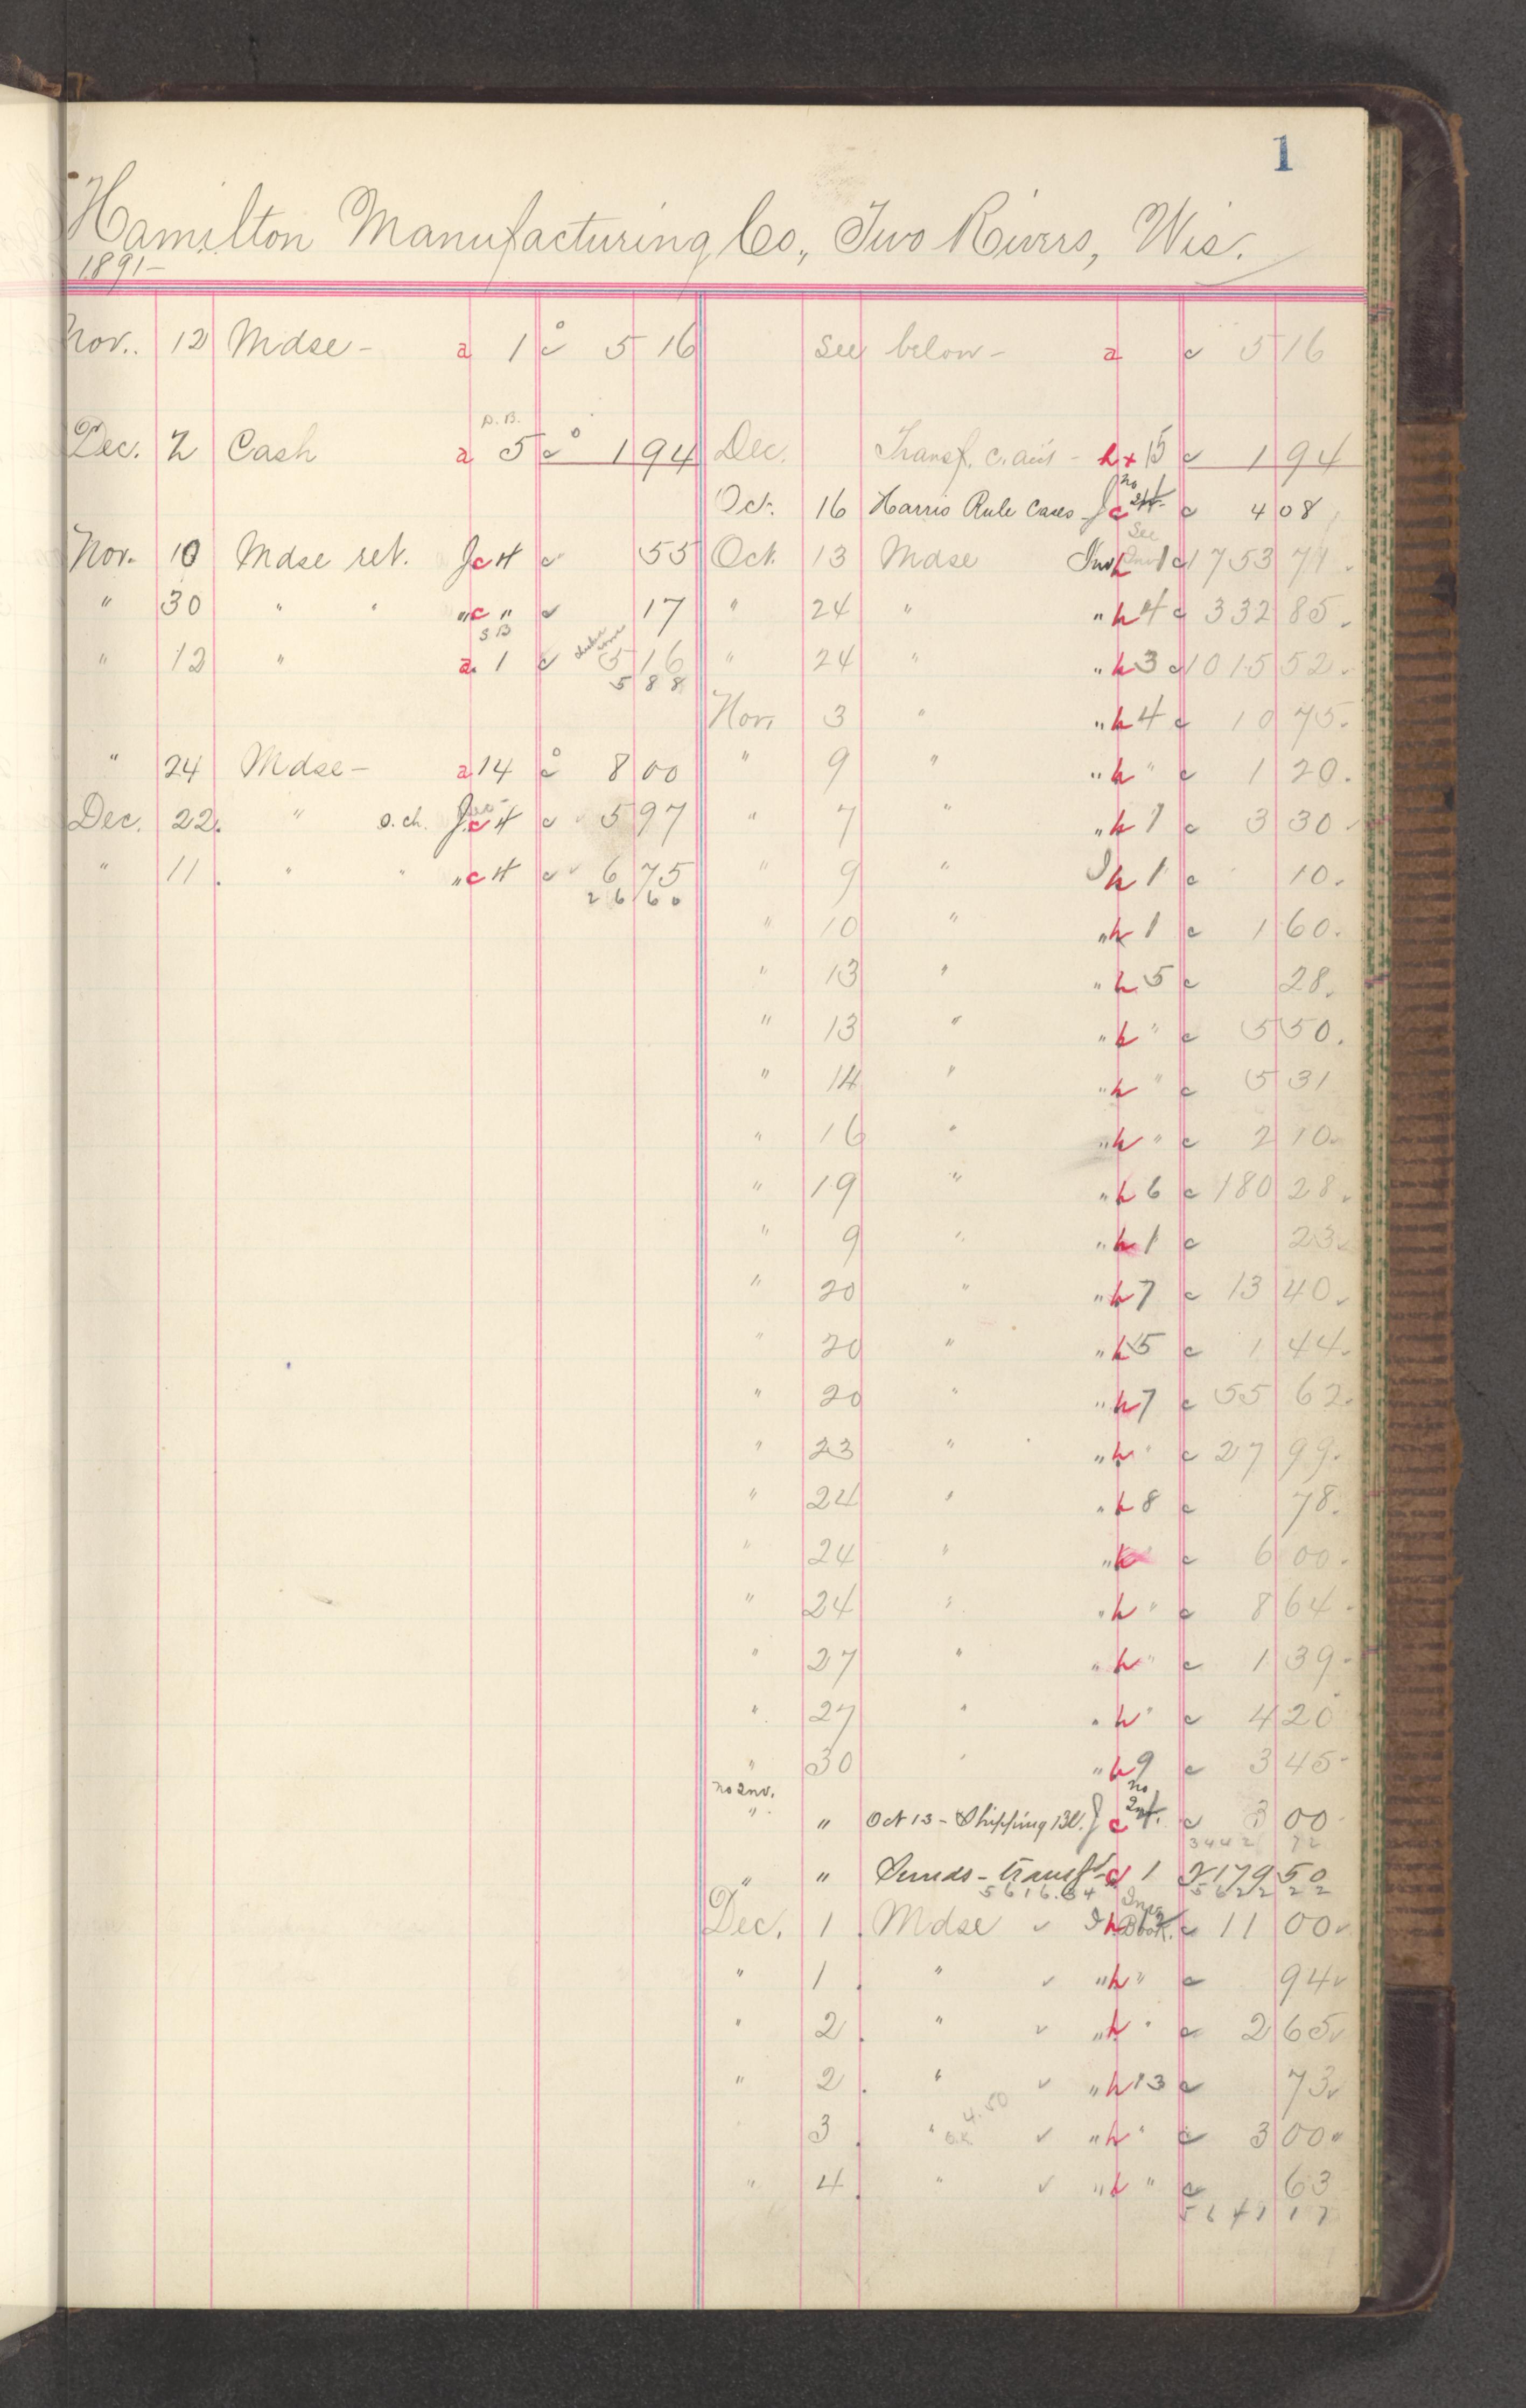 1
Hamilton Manufacturing Co., Two Rivers, Wis.
1891-
Nov. 12 Mdse - a 1 c 5 16 See below - a c 5 16
D. B.
Dec. 2 Cash a 5 c 1 94 Dec. Transf. h x 15 c 1 94
no
Oct. 16 Harris Rule Cases J c c 4 08
See
Nov. 10 Mdse ret. J c 4 c 55 Oct. 13 Mdse Inv h 1 c 1753 71
" 30 " " " c " c 17 " 24 " " h 4 c 332 85
S B
" 12 " a. 1 c 5 16 " 24 " " h 3 c 1015 52
5 88
Nov. 3 " " h 4 c 10 75
" 24 Mdse - a 14 c 8 00 " 9 " " h " c 1 20
Dec. 22. " o. ch. J c 4 c 5 97 " 7 " " h 1 c 3 30
" 11. " " " c 4 c 6 75 " 9 " J h 1 c 10
26 60
" 10 " " h 1 c 1 60
" 13 " " h 5 c 28
" 13 " " h " c 5 50
" 14 " " h " c 5 31
" 16 " " h " c 2 10
" 19 " " h 6 c 180 28
" 9 " " h 1 c 23
" 20 " " h 7 c 13 40
" 20 " " h 5 c 1 44
" 20 " " h 7 c 55 62
" 23 " " h " c 27 99
" 24 " " h 8 c 78
" 24 " " h c 6 00
" 24 " " h " c 8 64
" 27 " " h " c 1 39
" 27 " " h " c 4 20
" 30 " " h 9 c 3 45
no Inv. no
" " Oct 13 - Shipping Bl. J c c 3 00
3442 72
" " - transf'd c 1 2179 50
5616.34 5622 22
Dec. 1. Mdse ✓ J h Book. c 11 00 ✓
" 1. " ✓ " h " c 94 ✓
" 2. " ✓ " h " c 2 65 ✓
" 2. " ✓ " h 13 c 73 ✓
4.50
3. " O.K. ✓ " h " c 3 00 "
" 4. " ✓ " h " c 63
5641 17